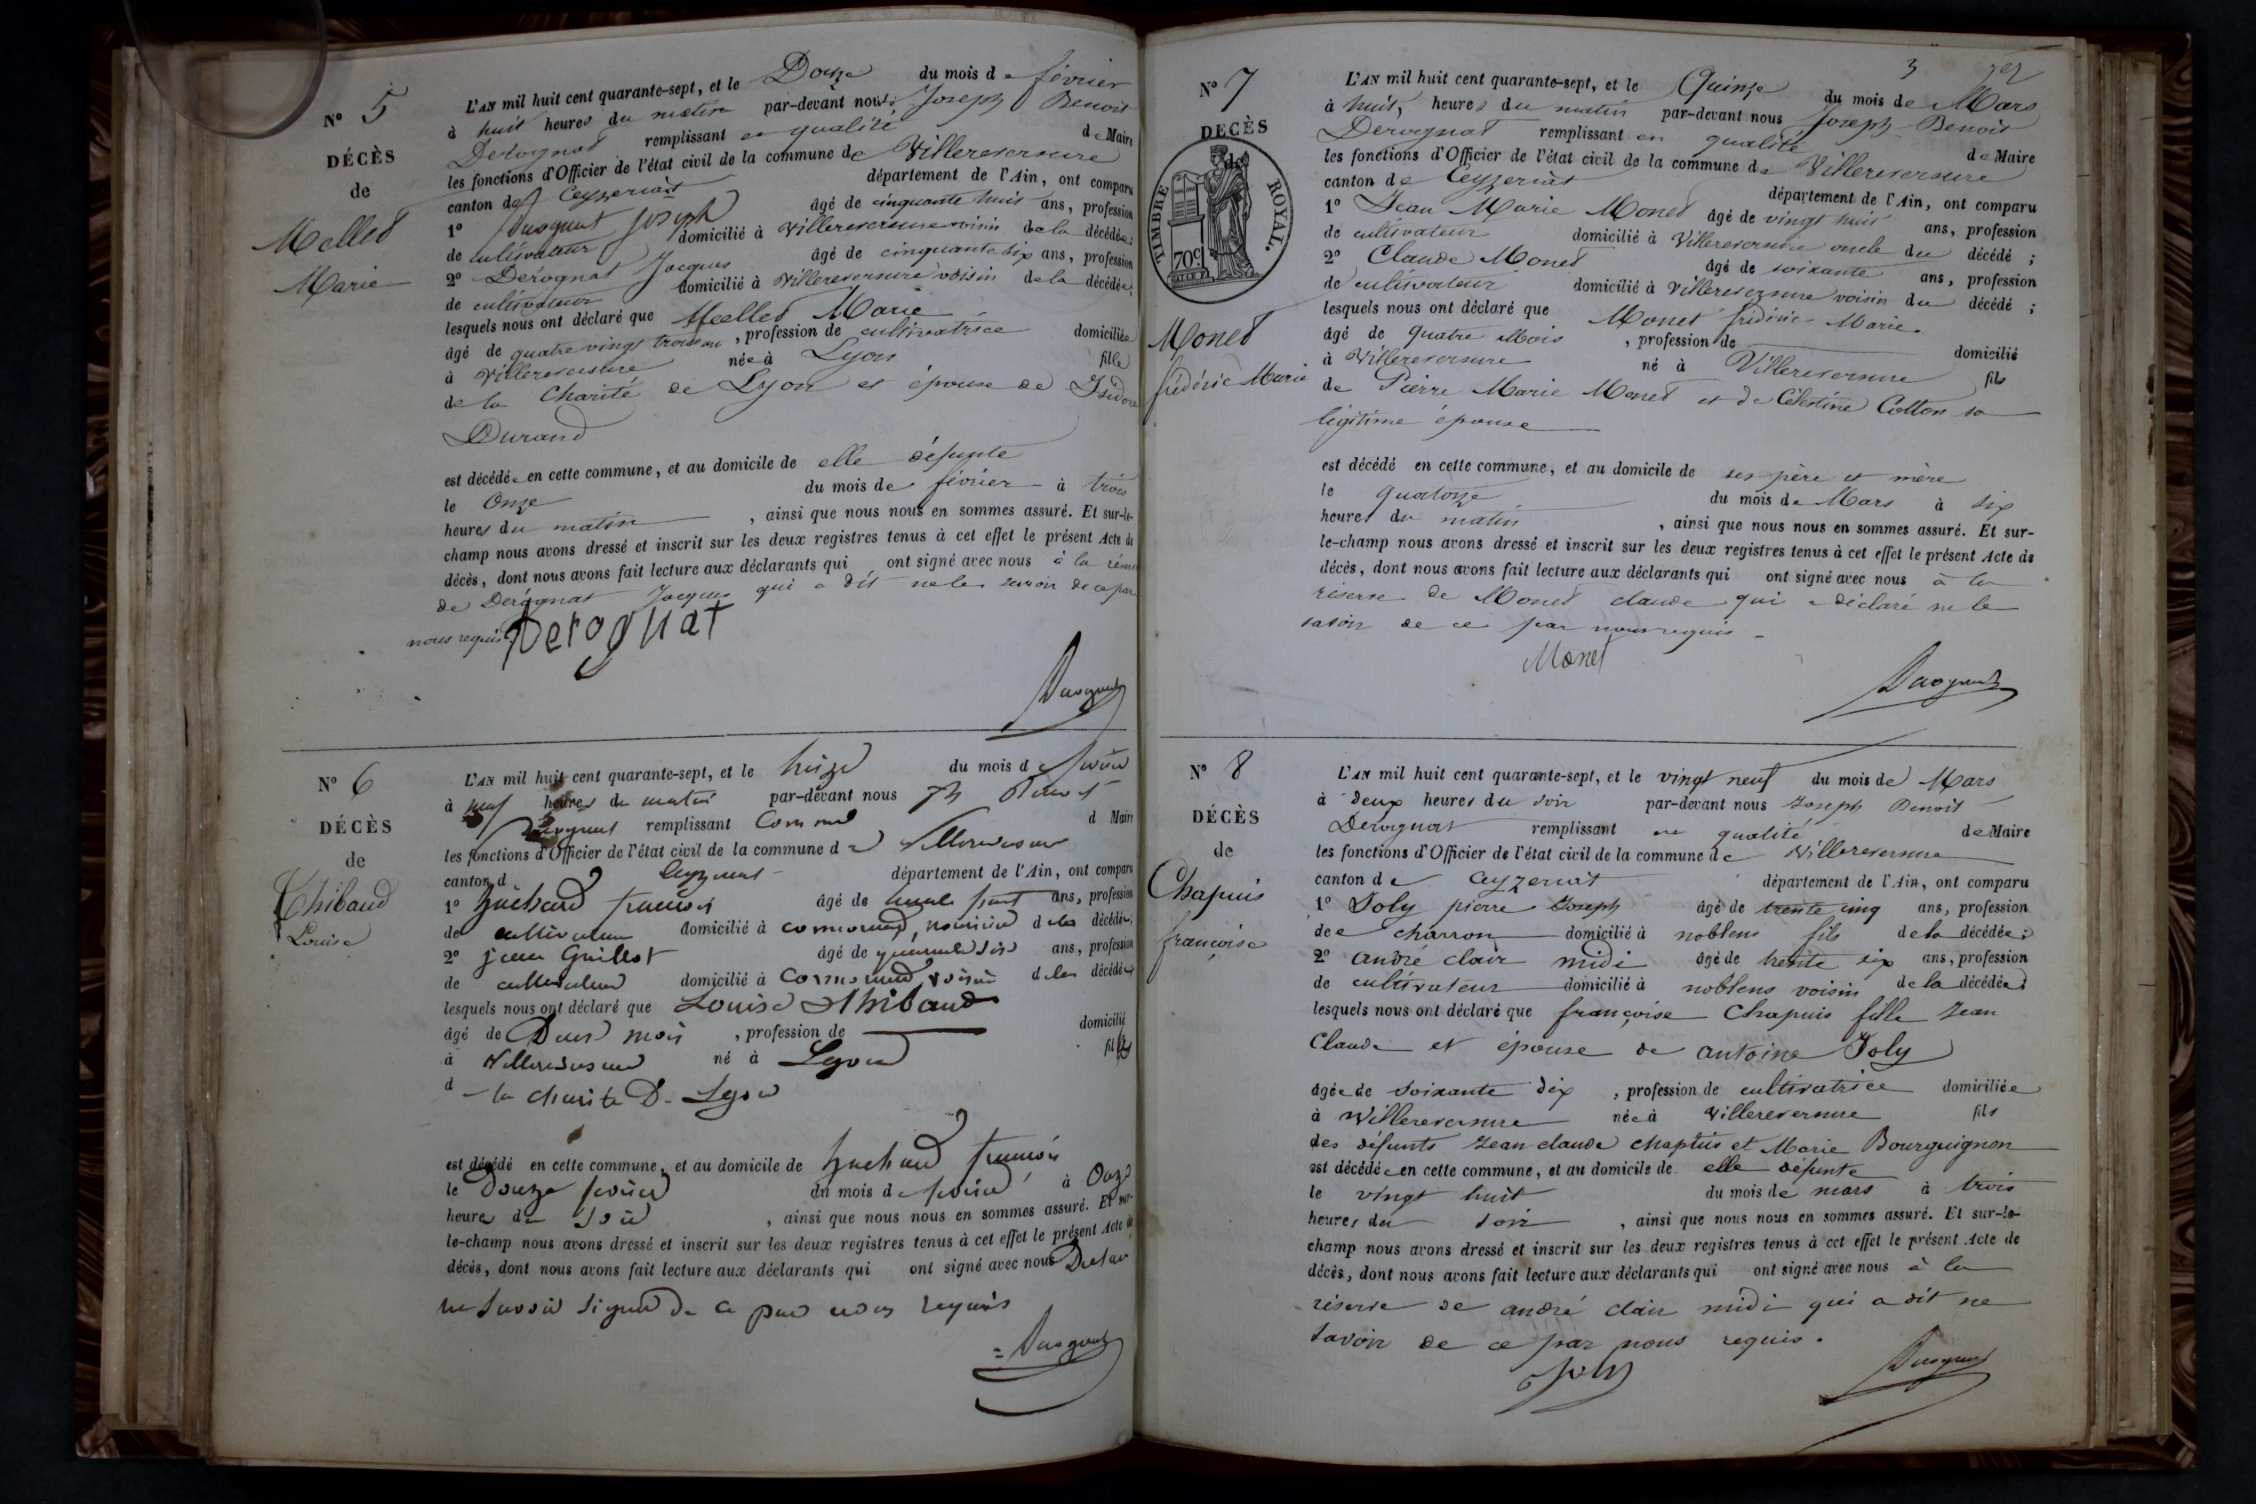 N° 5
DÉCÈS
de
Mellet
Marie
L'AN mil huit cent quarante-sept, et le Douze du mois de février
à huit heures du matin par-devant nous Joseph Benoit
Derognat remplissant en qualité de Maire
les fonctions d'Officier de l'état civil de la commune de Villereversure
canton de Ceyzeriat département de l'Ain, ont comparu
1° Joseph âgé de cinquante huit ans, profession
de cultivateur domicilié à Villereversure voisin de la décédée;
2° Derognat Jacques âgé de cinquante six ans, profession
de cultivateur domicilié à Villereversure voisin de la décédée;
lesquels nous ont déclaré que Mellet Marie
âgé de quatre vingt trois ans, profession de cultivatrice domiciliée
à Villereversure née à Lyon fille
de la Charité de Lyon et épouse de Isidore
Durand
est décédée en cette commune, et au domicile de elle défunte
le Onze du mois de février à trois
heures du matin, ainsi que nous nous en sommes assuré. Et sur-le-
champ nous avons dressé et inscrit sur les deux registres tenus à cet effet le présent Acte de
décès, dont nous avons fait lecture aux déclarants qui ont signé avec nous à la
de Derognat Jacques qui a dit ne le savoir de ce par
nous requis
Derognat
N° 6
DÉCÈS
de
Thibaud
Louise
L'AN mil huit cent quarante-sept, et le treize du mois de
à neuf heures du matin par-devant nous Jh Benoit
Derognat remplissant comme d Maire
les fonctions d'Officier de l'état civil de la commune de Villereversure
canton d Ceyzeriat département de l'Ain, ont comparu
1° françois âgé de ans, profession
de cultivateur domicilié à de la décédée;
2° jean Guillot âgé de quarante six ans, profession
de cultivateur domicilié à voisin de la décédée
lesquels nous ont déclaré que Louise Thibaud
âgé de Deux mois, profession de domicilié
à Villereversure né à Lyon fille
d la charité De Lyon
est décédé en cette commune, et au domicile de françois
le Douze février du mois de février à Onze
heures du soir, ainsi que nous nous en sommes assuré. Et sur-
le-champ nous avons dressé et inscrit sur les deux registres tenus à cet effet le présent Acte de
décès, dont nous avons fait lecture aux déclarants qui ont signé avec nous
ne savoir signer de ce par nous requis
3
N° 7
DECÈS
de
TIMBRE ROYAL.
70c
Monet
frédéric Marie
L'AN mil huit cent quarante-sept, et le Quinze du mois de Mars
à huit heures du matin par-devant nous Joseph Benoit
Derognat remplissant en qualité de Maire
les fonctions d'Officier de l'état civil de la commune de Villereversure
canton de Ceyzeriat département de l'Ain, ont comparu
1° Jean Marie Monet âgé de vingt huit ans, profession
de cultivateur domicilié à Villereversure oncle du décédé;
2° Claude Monet âgé de soixante ans, profession
de cultivateur domicilié à Villereversure voisin du décédé;
lesquels nous ont déclaré que Monet frédéric Marie
âgé de quatre Mois, profession de domicilié
à Villereversure né à Villereversure fils
de Pierre Marie Monet et de Célestine Cotton sa
légitime épouse
est décédé en cette commune, et au domicile de ses père et mère
le quatorze du mois de Mars à six
heures du matin, ainsi que nous nous en sommes assuré. Et sur-
le-champ nous avons dressé et inscrit sur les deux registres tenus à cet effet le présent Acte de
décès, dont nous avons fait lecture aux déclarants qui ont signé avec nous à la
réserve de Monet claude qui a déclaré ne le
savoir de ce par nous requis
Monet
N° 8
DÉCÈS
de
Chapuis
françoise
L'AN mil huit cent quarante-sept, et le vingt neuf du mois de Mars
à Deux heures du soir par-devant nous Joseph Benoit
Derognat remplissant en qualité de Maire
les fonctions d'Officier de l'état civil de la commune de Villereversure
canton de Ceyzeriat département de l'Ain, ont comparu
1° Joly pierre Joseph âgé de trente cinq ans, profession
de charron domicilié à noblens fils de la décédée;
2° andré clair midi âgé de trente six ans, profession
de cultivateur domicilié à noblens voisin de la décédée;
lesquels nous ont déclaré que françoise Chapuis fille Jean
Claude et épouse de antoine Joly
âgée de soixante dix, profession de cultivatrice domiciliée
à Villereversure née à Villereversure fils
des défunts Jean claude chapuis et Marie Bourguignon
est décédée en cette commune, et au domicile de elle défunte
le vingt huit du mois de mars à trois
heures du soir, ainsi que nous nous en sommes assuré. Et sur-le-
champ nous avons dressé et inscrit sur les deux registres tenus à cet effet le présent Acte de
décès, dont nous avons fait lecture aux déclarants qui ont signé avec nous à la
réserve de andré clair midi qui a dit ne
savoir de ce par nous requis.
Joly